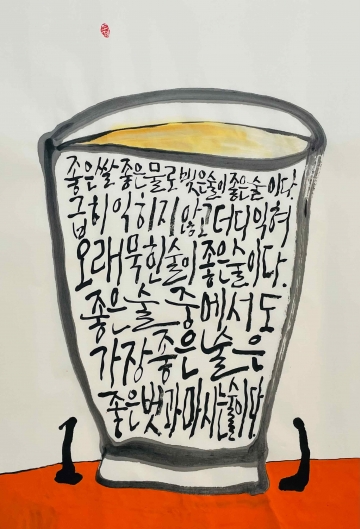 좋은쌀 좋은물로 빚은술이 좋은술이다.
급히 익히지 않고 더디 익혀
오래묵힌술이 좋은술이다.
좋은술중에서도
가장좋은술은
좋은벗과마시는술이다